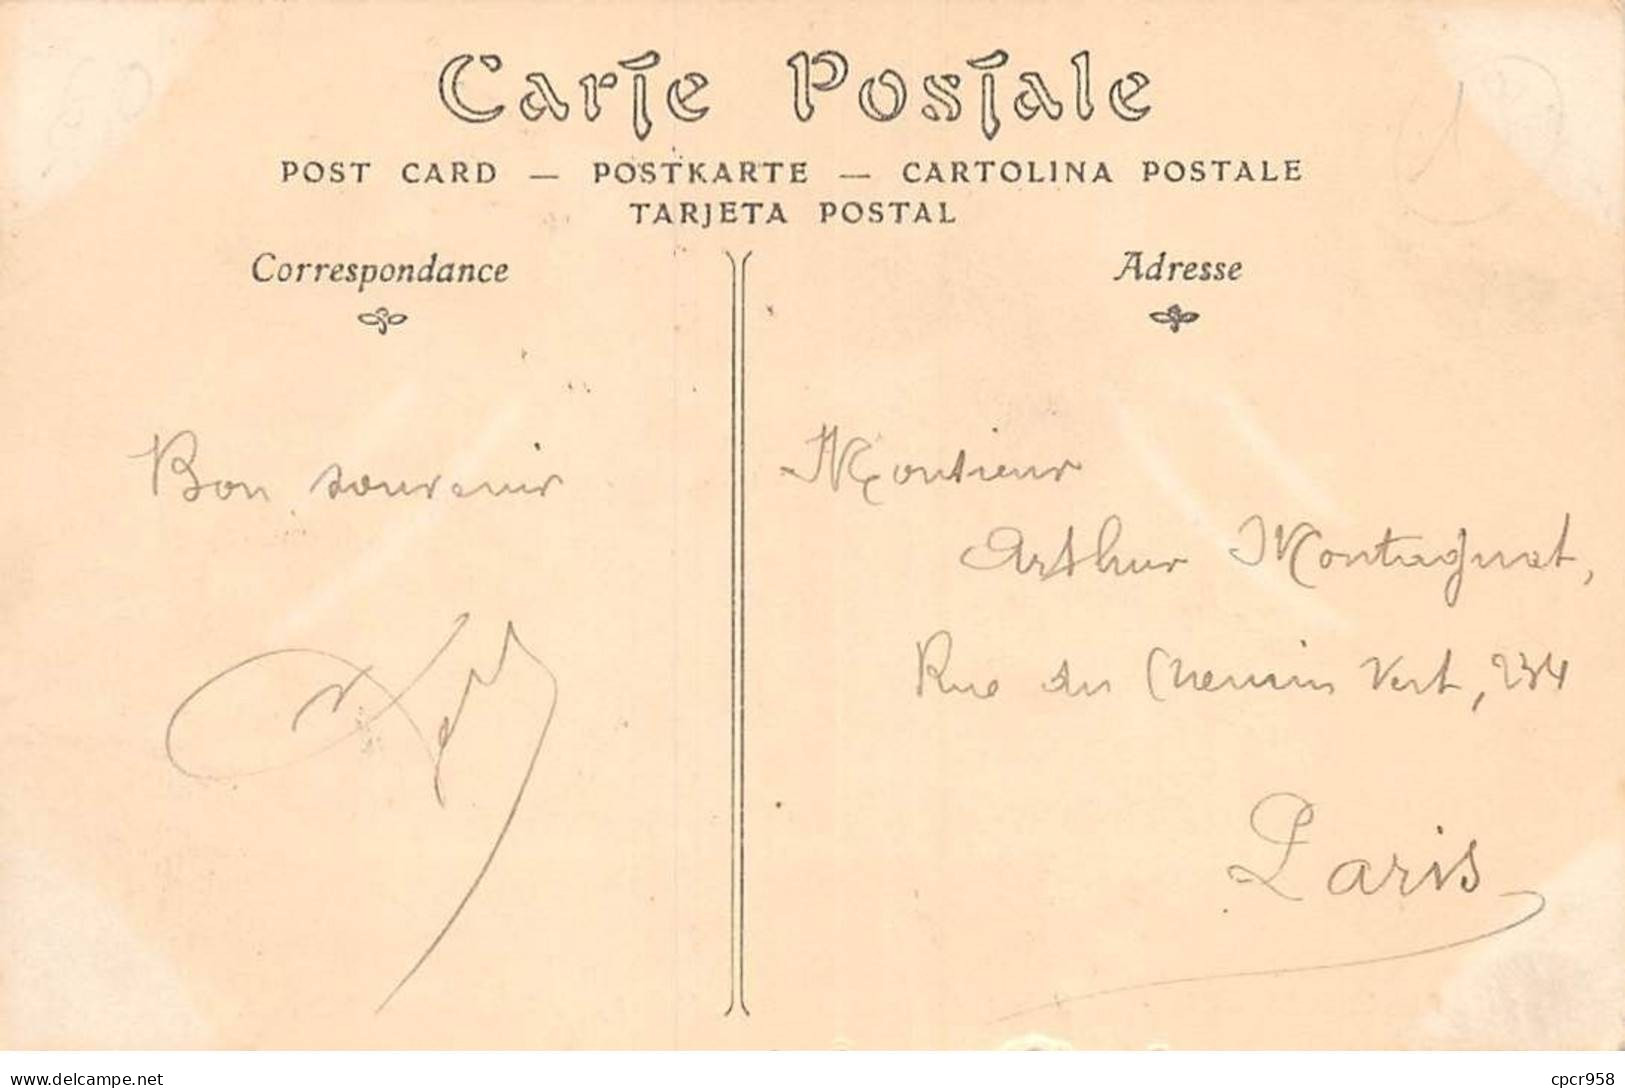 Carte Postale
POST CARD — POSTKARTE — CARTOLINA POSTALE
TARJETA POSTAL
Correspondance
Adresse
Bon souvenir
Monsieur
Arthur Montagnat,
Rue du Chemin Vert, 234
Paris
delcampe.net
cpcr958